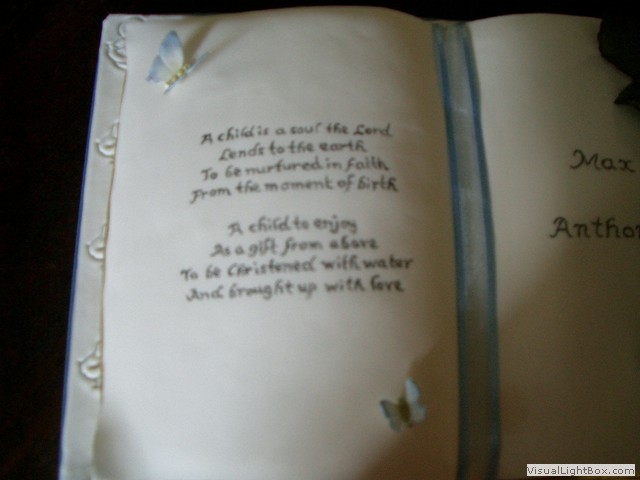 A child is a soul the Lord
Lends to the earth
To be nurtured in faith
From the moment of birth
A child to enjoy
As a gift from above
To be Christened with water
And brought up with love
Max
Anthon
VisualLightBox.com